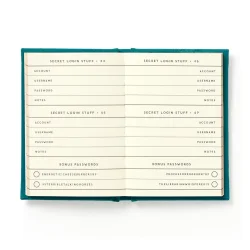 SECRET LOGIN STUFF
ACCOUNT
USERNAME
PASSWORD
NOTES
SECRET LOGIN STUFF
ACCOUNT
USERNAME
PASSWORD
NOTES
BONUS PASSWORDS
SECRET LOGIN STUFF
ACCOUNT
USERNAME
PASSWORD
NOTES
SECRET LOGIN STUFF
ACCOUNT
USERNAME
PASSWORD
NOTES
BONUS PASSWORDS